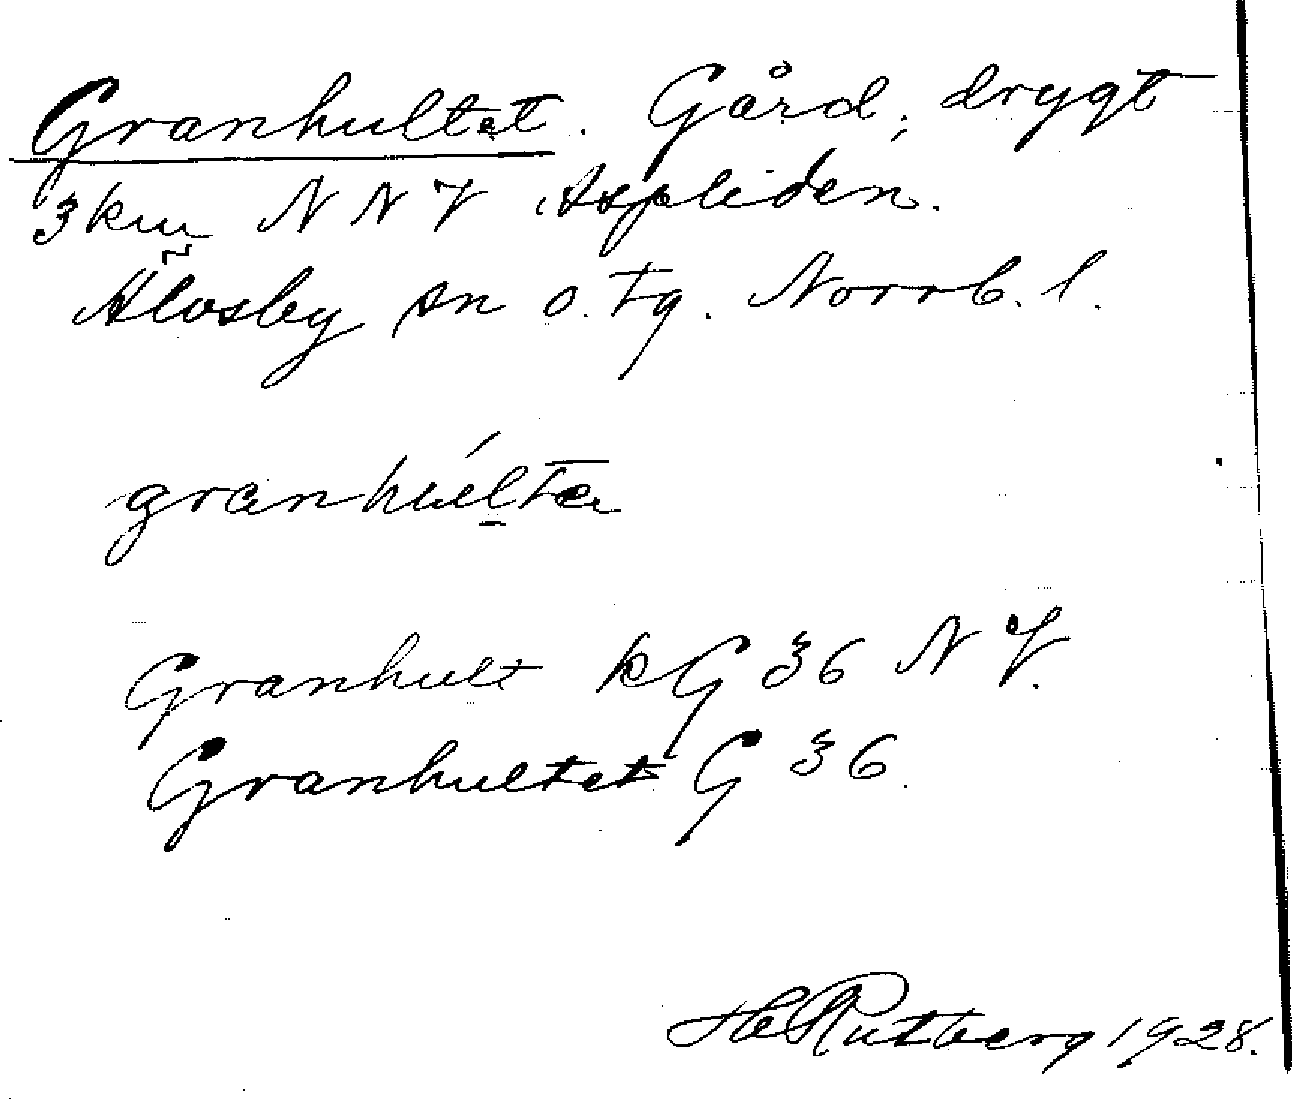 Granhultet. Gård, drygt
3 km N N V Aspliden.
Älvsby sn o. tg. Norrb. l.
granhúlta
Granhult kG 36 N V.
Granhultet G 36.
H Rutberg 1928.